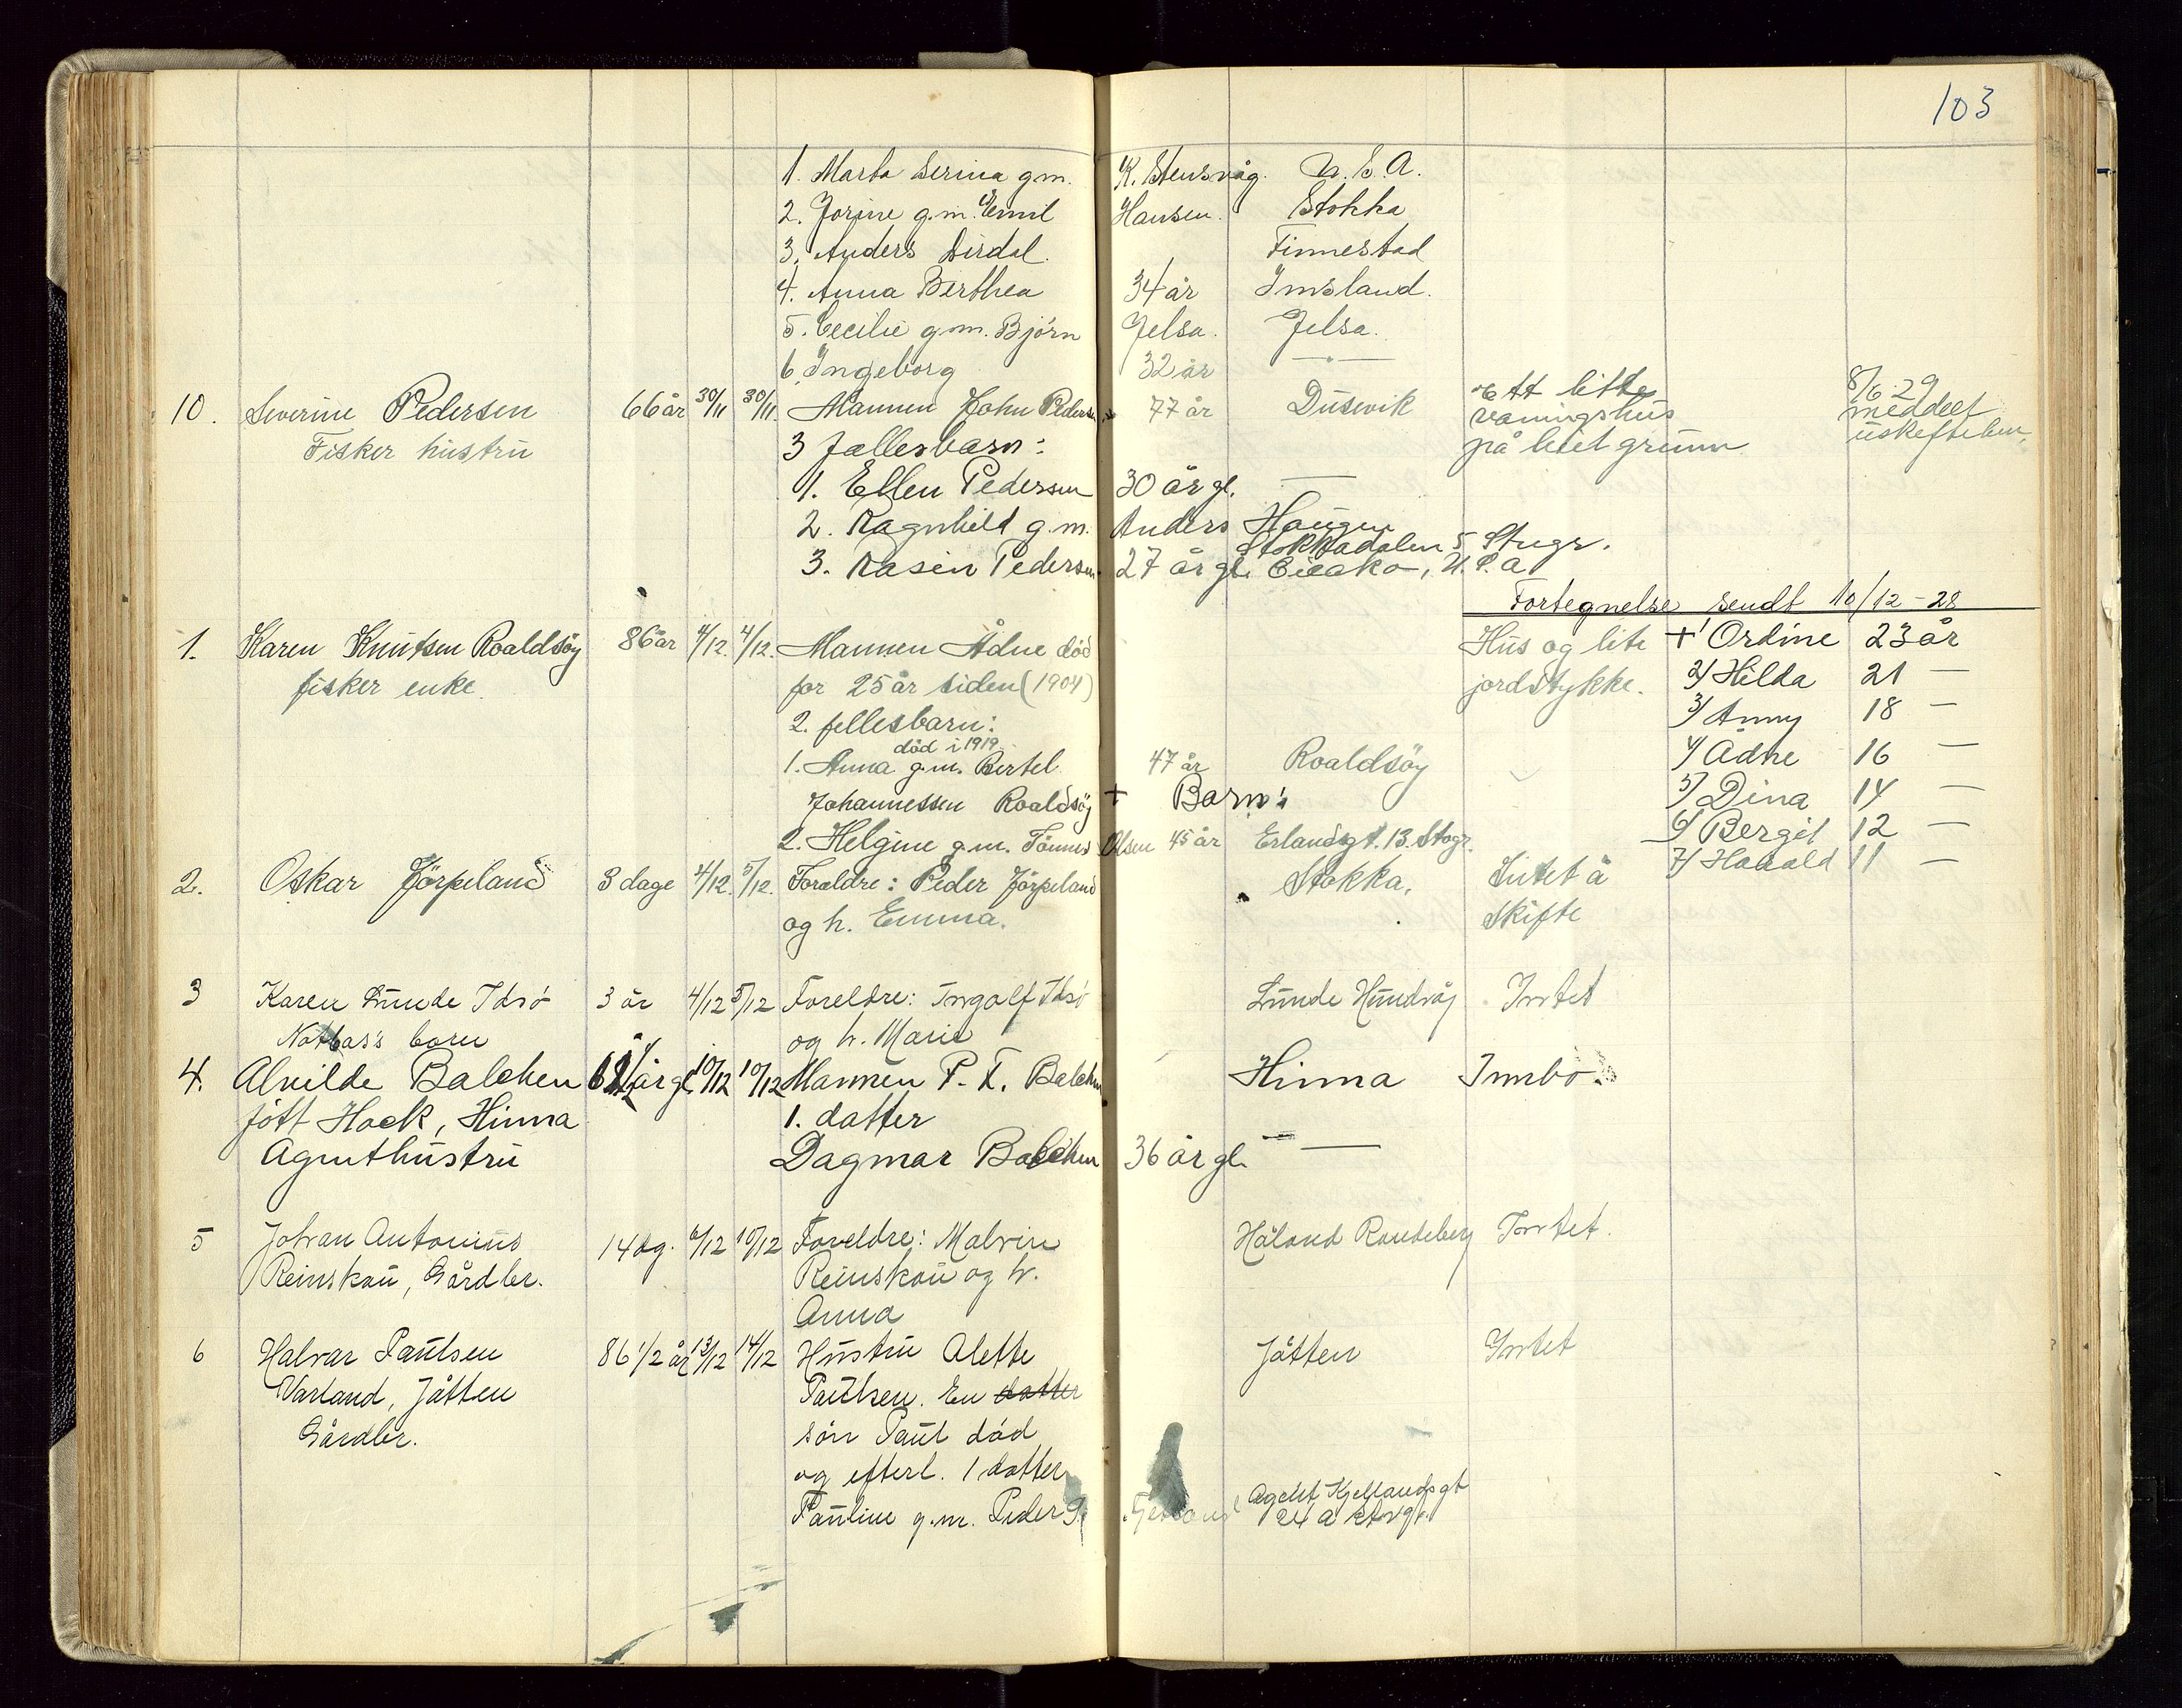 103
1. Marta Serina g.m. K. Stensvåg. U.S.A.
2. Jorine g.m. Emil Hansen. Stokka
3. Anders Sirdal. Finnestad
4. Anna Berthea 34 år Imsland.
5. Cecilie g.m. Björn Jelsa. Jelsa.
6. Ingeborg 32 år —"—
10. Severine Pedersen 66 år 30/11 30/11. Mannen John Pedersen 77 år Dusevik Ett litte 8/6.29
Fisker hustru 3 fællesbarn: vaningshus meddelt
på leiet grunn
1. Ellen Pedersen 30 år gl. —
2. Ragnhild g.m. Anders Haugen
Stokkadalen 5 Stvgr.
3. Rasin Pedersen 27 år gl. U.S.A
Fortegnelse sendt 10/12-28
1. Karen Knutsen Roaldsöy 86 år 4/12. 4/12. Mannen Ådne død Hus og lite + 1 Ordine 23 år
fisker enke. for 25 år siden (1904) jordstykke. 2/ Hilda 21 —
2. fellesbarn: 3/ Anny 18 —
død i 1919
1. Anna g.m. Bertel 47 år Roaldsöy 4/ Ådne 16 —
Johannessen Roaldsöy + Barn: 5/ Dina 14 —
2. Helgine g.m. Tönnes Olsen 45 år Erlandsgt. 13. Stvgr. 6/ Bergit 12 —
7/ Harald 11 —
2. Oskar Jörpeland 3 dage 4/12. 5/12. Forældre: Peder Jörpeland Stokka. Intet å
og h. Emma. Skifte
3 Karen Lunde Idsö 3 år 4/12 5/12 Foreldre: Ingolf Idsö Lunde Hundvåg Intet
barn og h. Marie
4. Alvilde Balchen år gl. 10/12 10/12 Mannen P. T. Balchen Hinna Innbo.
fött Hock, Hinna 1. datter
Agenthustru Dagmar Balchen 36 år gl. —"—
5 Johan Antonius 14 dg. 6/12 10/12 Foreldre: Malvin Håland Randeberg Intet.
Reinskau, Gårdbr. Reinskau og h.
Anna
6 Halvar Paulsen 86 1/2 år 13/12 14/12 Hustru Alette Jåtten Intet
Varland, Jåtten Paulsen. En datter
Gårdbr. sön Paul död
og efterl. 1 datter
Pauline g.m. Peder Agent Kjellandsgt
24 a Stvgr.